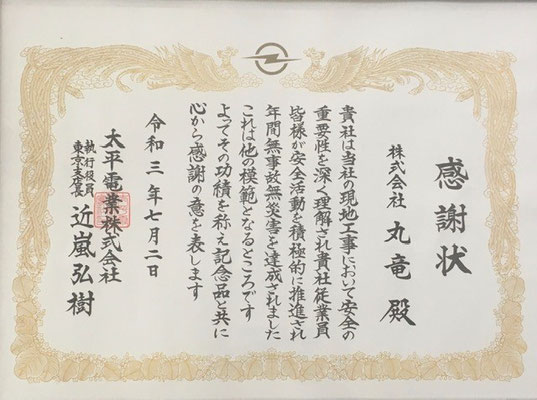 感謝状
株式会社 丸竜 殿
貴社は当社の現地工事において安全の
重要性を深く理解され貴社従業員
皆様が安全活動を積極的に推進され
年間無事故無災害を達成されました
これは他の模範となるところです
よってその功績を称え記念品と共に
心から感謝の意を表します
令和三年七月二日
太平電業株式会社
執行役員
東京支店長
近嵐弘樹